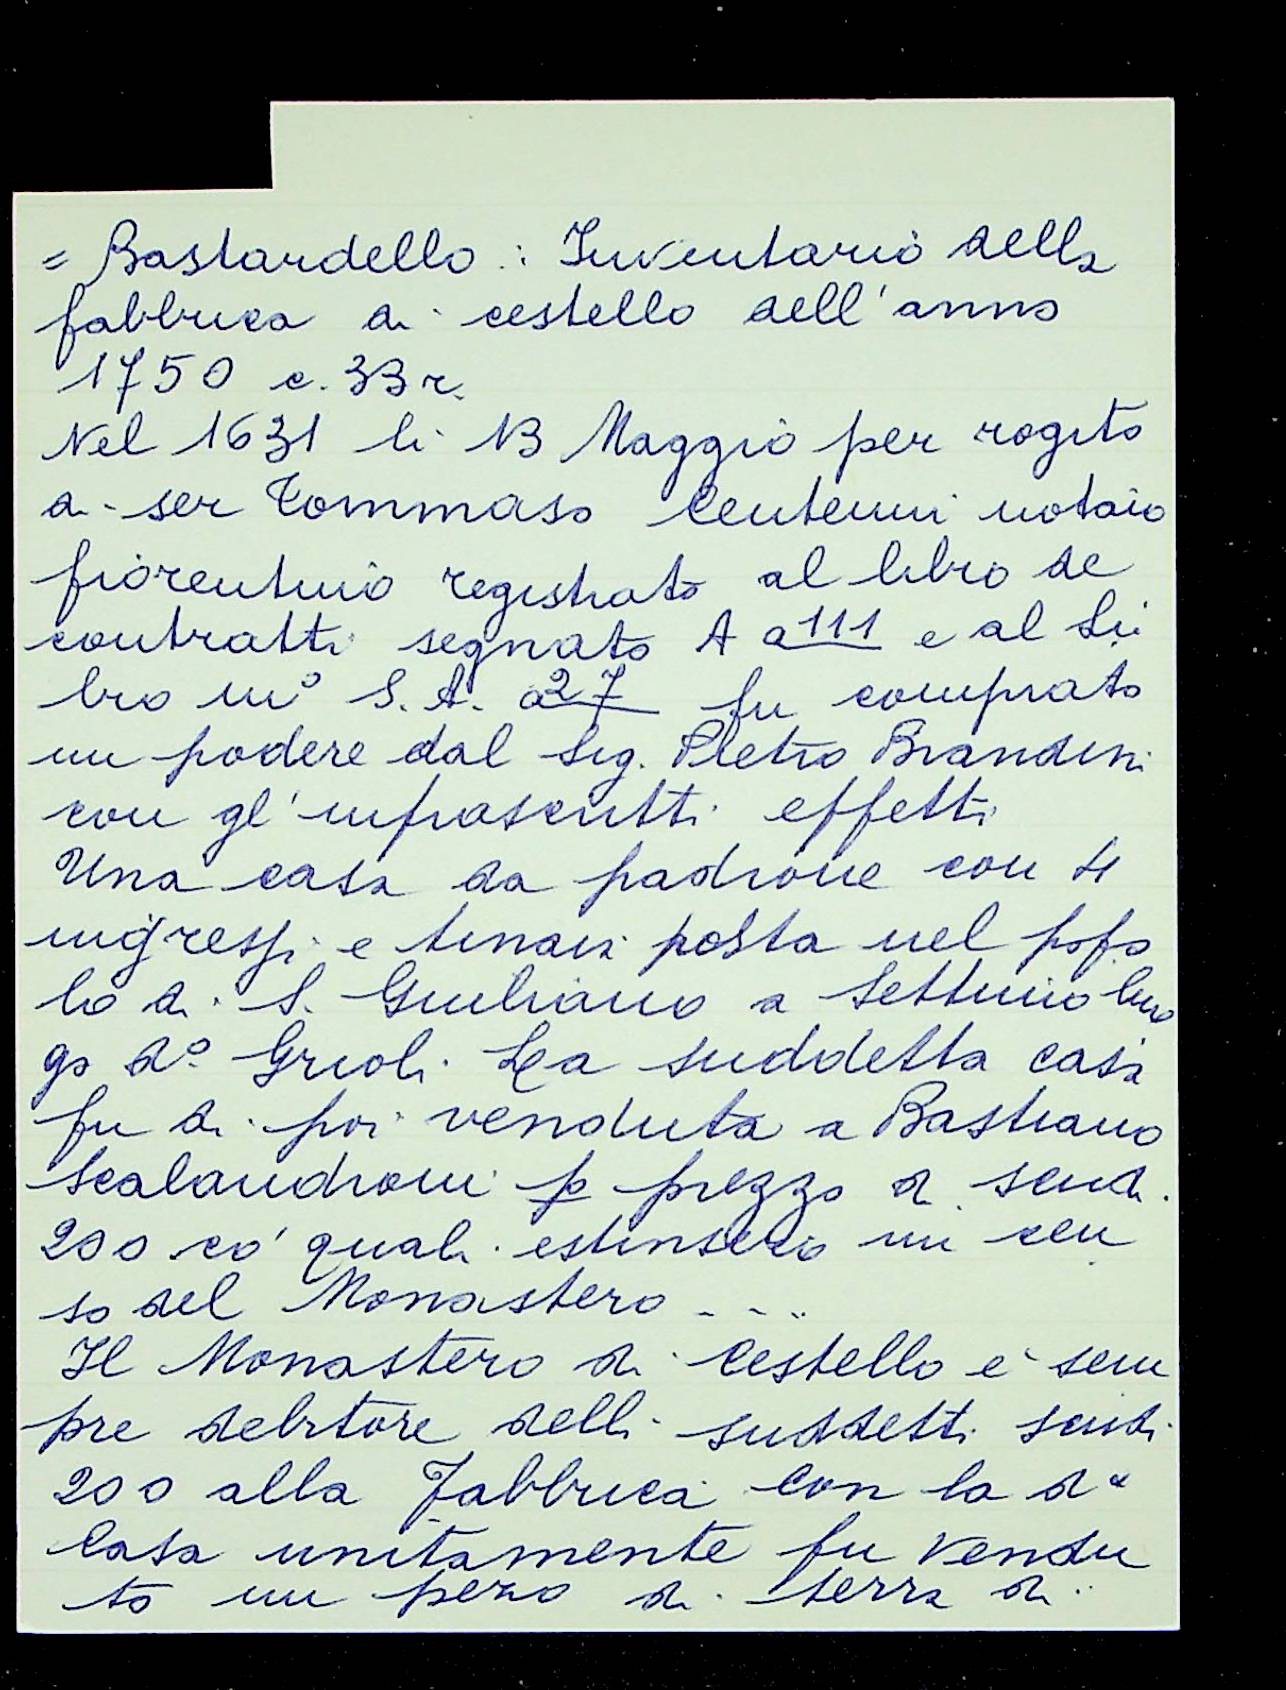 = Bastardello : Inventario della
fabbrica di cestello dell'anno
1750 c. 33 r.
Nel 1631 li 13 Maggio per rogito
di ser Tommaso Centenni notaio
fiorentino registrato al libro de
contratti segnato A a 111 e al Li
bro in° S. A. a 27 fu comprato
un podere dal Sig. Pietro Brandini
con gl'infrascritti effetti
Una casa da padrone con 4
ingressi e tinaia posta nel popo
lo di S. Giuliano a Settimo luo
go d° Grioli. La suddetta casa
fu di poi venduta a Bastiano
Scalandroni p prezzo di scudi
200 co' quali estinsero un cen
so del Monastero ...
Il Monastero di Cestello è sem
pre debitore delli suddetti scudi
200 alla Fabbrica con la dª
Casa unitamente fu vendu
to un pezzo di terra di